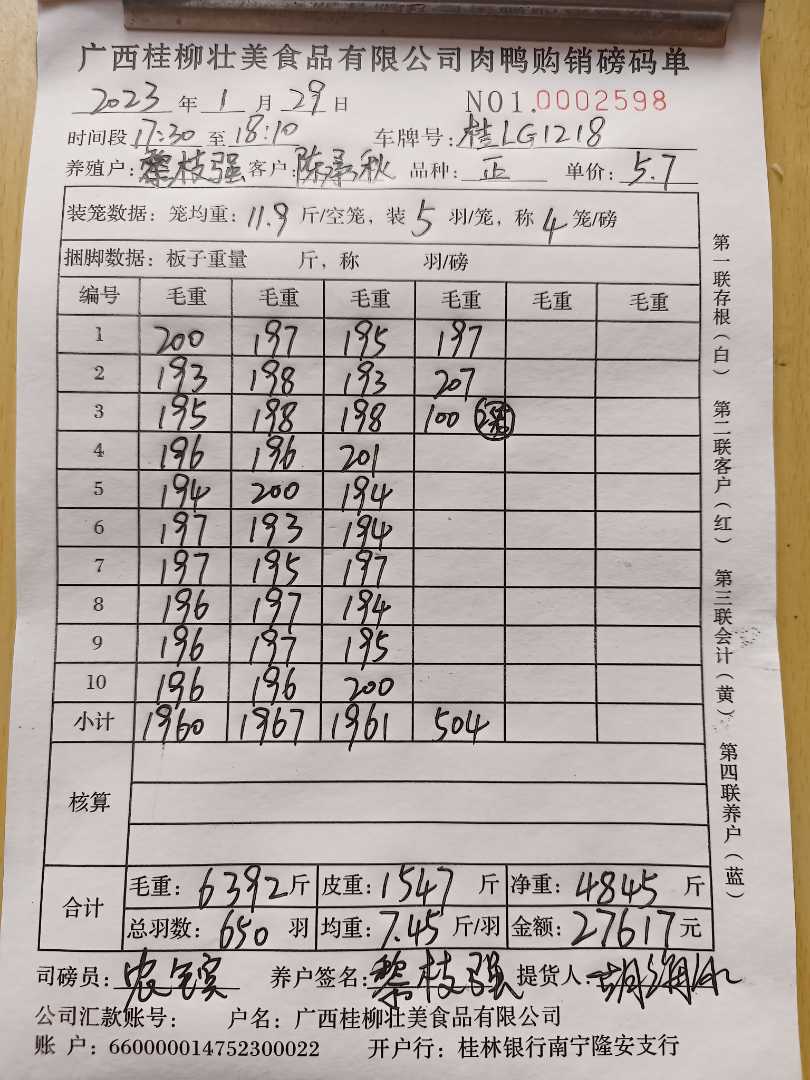 广西桂柳壮美食品有限公司肉鸭购销磅码单
2023 年 1 月 29 日 NO1.0002598
时间段 17:30 至 18:10 车牌号: 桂LG1218
养殖户: 黎枝强 客户: 陈承秋 品种: 正 单价: 5.7
装笼数据: 笼均重: 11.9 斤/空笼, 装 5 羽/笼, 称 4 笼/磅
捆脚数据: 板子重量 斤, 称 羽/磅
编号 毛重 毛重 毛重 毛重 毛重 毛重
1 200 197 195 197
2 193 198 193 207
3 195 198 198 100
4 196 196 201
5 194 200 194
6 197 193 194
7 197 195 197
8 196 197 194
9 196 197 195
10 196 196 200
小计 1960 1967 1961 504
核算
合计 毛重: 6392 斤 皮重: 1547 斤 净重: 4845 斤
总羽数: 650 羽 均重: 7.45 斤/羽 金额: 27617 元
司磅员: 养户签名: 黎枝强 提货人:
公司汇款账号: 户名: 广西桂柳壮美食品有限公司
账 户: 660000014752300022 开户行: 桂林银行南宁隆安支行
第一联存根(白) 第二联客户(红) 第三联会计(黄) 第四联养户(蓝)